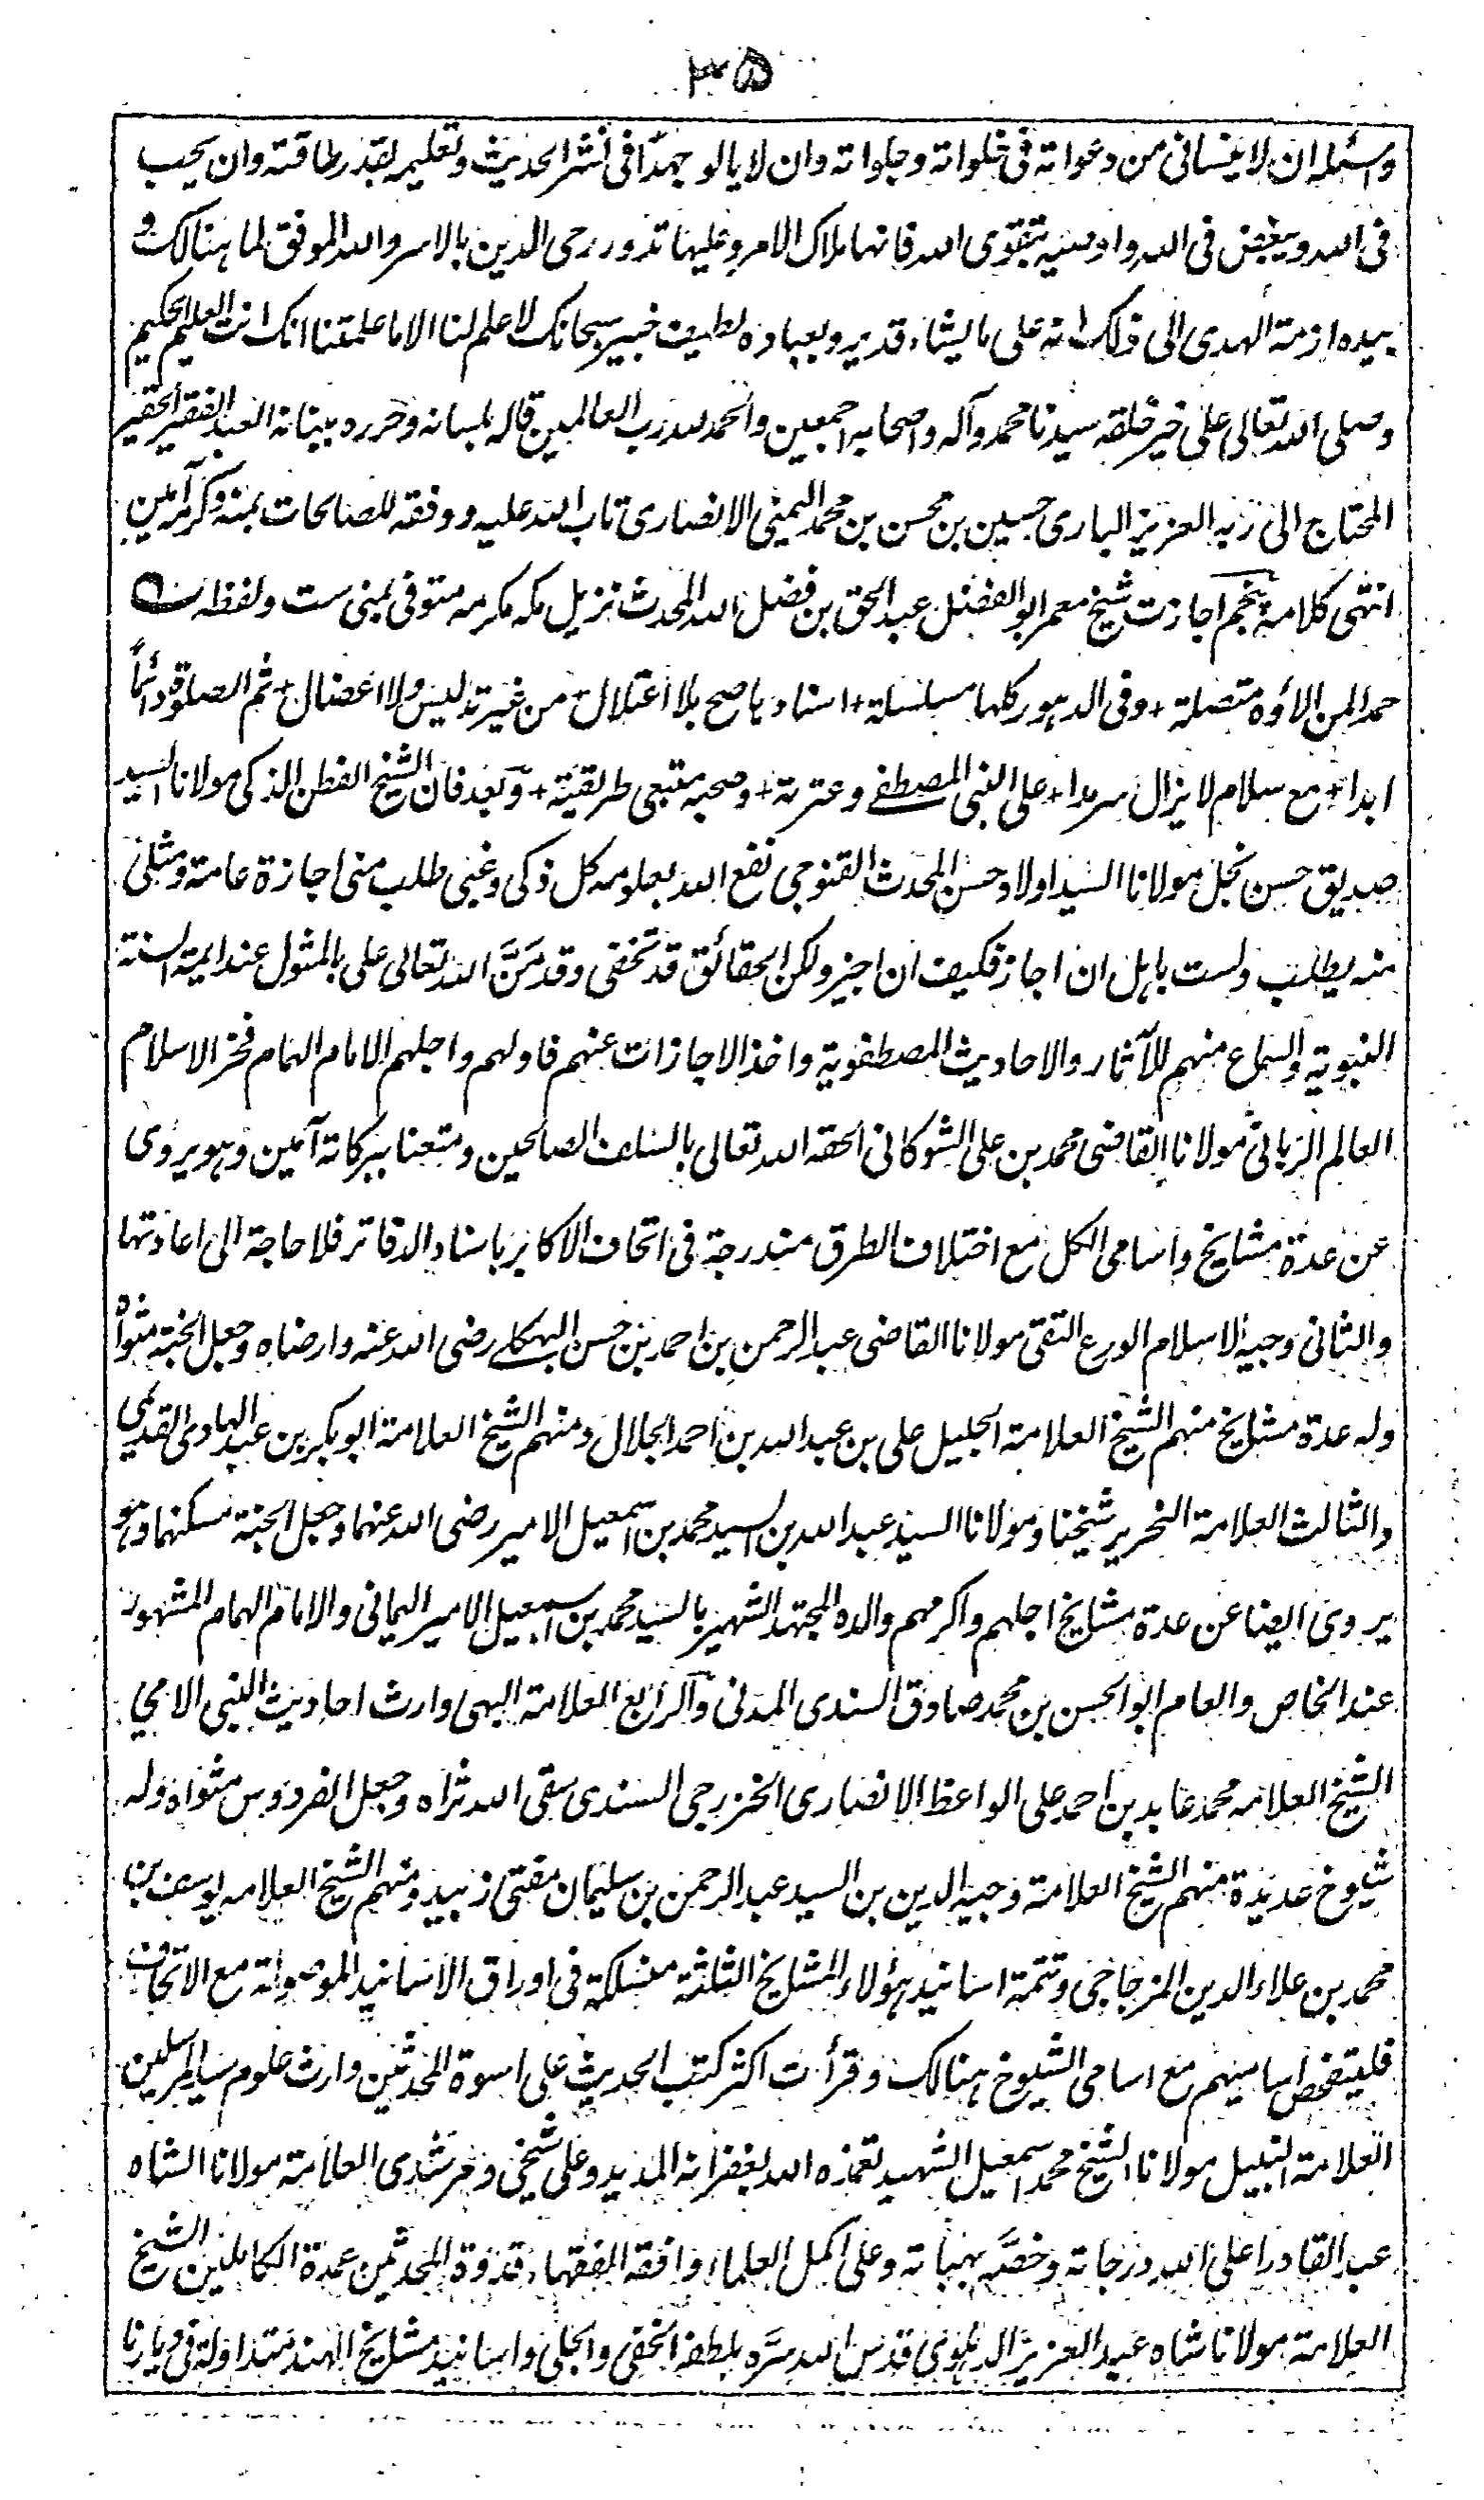 ۳۵
واسئله ان لا ینسانی من دعواته فی خلواته وجلواته وان لا یالو جهدًا فی نشر الحدیث وتعلیمه بقدر طاقته وان یحب
فی الله ویبغض فی الله واوصیه بتقوی الله فانها ملاک الامر وعلیها تدور رحی الدین بالاسر والله الموفق لما هنالک و
بیده ازمة الهدی الی ذلک انه علی ما یشاء قدیر وبعباده لطیف خبیر سبحانک لا علم لنا الا ما علمتنا انک انت العلیم الحکیم
وصلی الله تعالی علی خیر خلقه سیدنا محمد وآله واصحابه اجمعین والحمد لله رب العالمین قاله بلسانه وحرره ببنانه العبد الفقیر الحقیر
المحتاج الی ربه العزیز الباری حسین بن محسن بن محمد الیمنی الانصاری تاب الله علیه ووفقه للصالحات بمنه وکرمه آمین
انتهی کلامه پنجم اجازت شیخ معمر ابو الفضل عبد الحق بن فضل الله المحدث نزیل مکه مکرمه متوفی بمنی ست ولفظه
حمدا لمن الاؤه متصلة + وفی الدهور کلها مسلسلة + اسنادها صح بلا اعتلال + من غیر تدلیس ولا اعضال + ثم الصلوة دائماً
ابدا + مع سلام لا یزال سرمدا + علی النبی المصطفے وعترته + وصحبه متبعی طریقته + وبعد فان الشیخ الفطن الذکی مولانا السید
صدیق حسن نجل مولانا السید اولاد حسن المحدث القنوجی نفع الله بعلومه کل ذکی وغبی طلب منی اجازة عامة ومثلی
منه یطلب ولست باهل ان اجاز فکیف ان اجیز ولکن الحقائق قد تخفی وقد مَنَّ الله تعالی علی بالمثول عند ایمة السنة
النبویة والسماع منهم للآثار والاحادیث المصطفویة واخذ الاجازات عنهم فاولهم واجلهم الامام الهمام فخر الاسلام
العالم الربانی مولانا القاضی محمد بن علی الشوکانی الحقه الله تعالی بالسلف الصالحین ومتعنا ببرکاته آمین وهو یروی
عن عدة مشایخ واسامی الکل مع اختلاف الطرق مندرجة فی اتحاف الاکابر باسناد الدفاتر فلا حاجة الی اعادتها
والثانی وجیه الاسلام الورع التقی مولانا القاضی عبد الرحمن بن احمد بن حسن البهکلے رضی الله عنه وارضاه وجعل الجنة مثواه
وله عدة مشایخ منهم الشیخ العلامة الجلیل علی بن عبد الله بن احمد الجلال ومنهم الشیخ العلامة ابو بکر بن عبد الهادی القدیمی
والثالث العلامة النحریر شیخنا ومولانا السید عبد الله بن السید محمد بن اسمعیل الامیر رضی الله عنهما وجعل الجنة مسکنهما وهو
یروی ایضا عن عدة مشایخ اجلهم واکرمهم والده المجتهد الشهیر بالسید محمد بن اسمعیل الامیر الیمانی والامام الهمام المشهور
عند الخاص والعام ابو الحسن بن محمد صادق السندی المدنی والرابع العلامة البهی وارث احادیث النبی الامی
الشیخ العلامه محمد عابد بن احمد علی الواعظ الانصاری الخزرجی السندی سقی الله ثراه وجعل الفردوس مثواه وله
شیوخ عدیدة منهم الشیخ العلامة وجیه الدین بن السید عبد الرحمن بن سلیمان مفتی زبید ومنهم الشیخ العلامه یوسف بن
محمد بن علاء الدین المزجاجی وتتمة اسانید هؤلاء المشایخ الثلثة منسلکة فی اوراق الاسانید الموصولة مع الاتحاف
فلیتفحص اسانیدهم مع اسامی الشیوخ هنالک وقرأت اکثر کتب الحدیث علی اسوة المحدثین وارث علوم سید المرسلین
العلامة النبیل مولانا الشیخ محمد اسمعیل الشهید تغمده الله بغفرانه المدید وعلی شیخی ومرشدی العلامة مولانا الشاه
عبد القادر اعلی الله درجاته وخصَّه بهباته وعلی اکمل العلماء وافقه الفقهاء قدوة المحدثین عمدة الکاملین الشیخ
العلامة مولانا شاه عبد العزیز الدهلوی قدس الله سرَّه بلطفه الخفی والجلی واسانید مشایخ الهند متداولة فی دیارنا